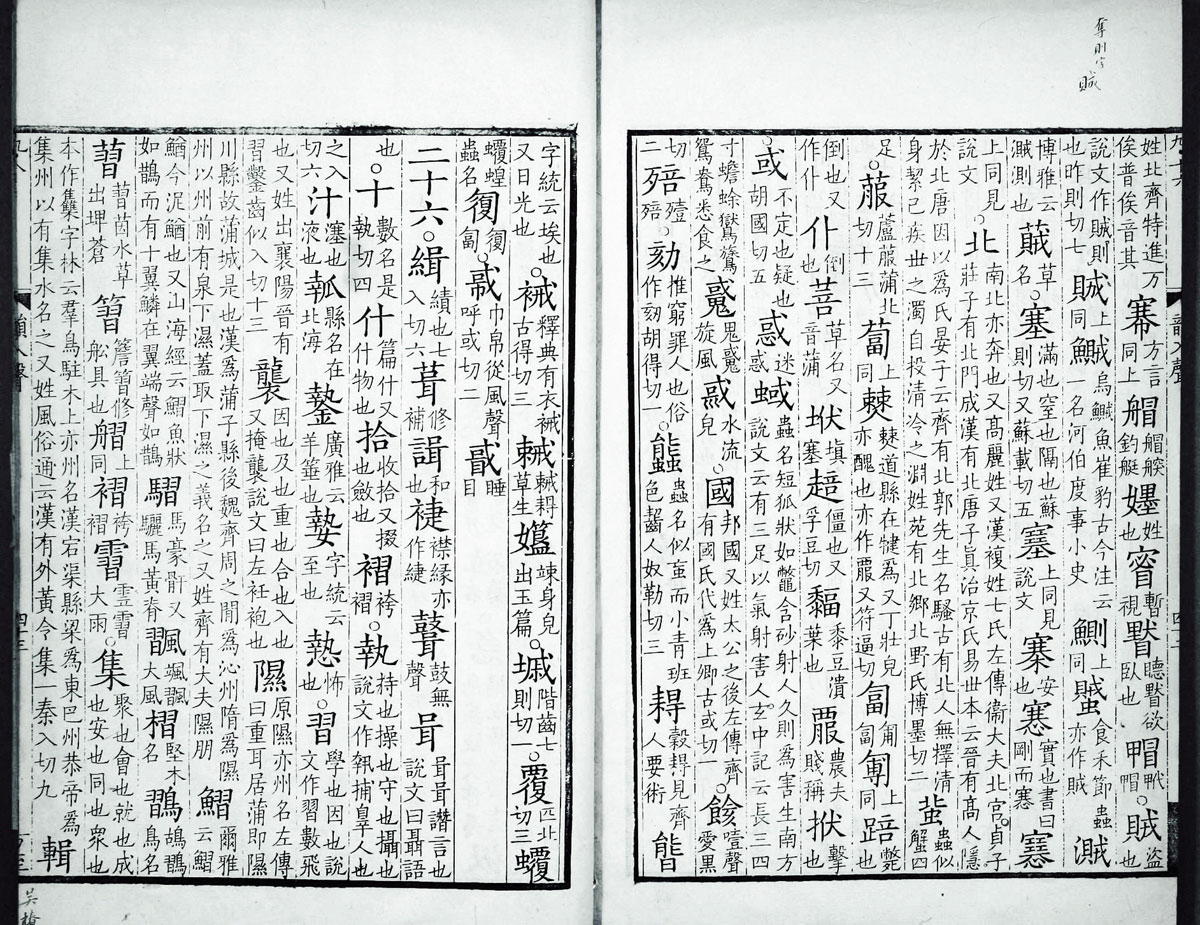 姓北齊特進万俟普俟音其 㝱方言同上 艒艒䑿釣艇 嫼姓也 䁇暫視 默聽默欲臥也 帽 ○賊盜也
說文作賊則也昨則切七 賊上同 鰂烏鰂魚崔豹古今注云一名河伯度事小史 鯽上同 蠈食禾節蟲亦作賊 㵩
博雅云㵩測也 蠈草名 ○塞滿也窒也隔也蘇則切又蘇載切五 塞上同見說文 寨安也 㥶實也書曰剛而㥶 㥶
上同見說文 ○北南北亦奔也又高麗姓又漢複姓七氏左傳衞大夫北宮貞子莊子有北門成漢有北唐子眞治京氏易世本云晉有高人隱
於北唐因以爲氏晏子云齊有北郭先生名騷古有北人無擇清身絜己疾世之濁自投清泠之淵姓苑有北鄉北野氏博墨切二 蜚蟲似蟹四
足 ○菔蘆菔蒲北切十三 蔔上同 僰僰道縣在犍爲又丁壯皃亦醜也亦作䠋又符逼切 匐匍匐 㔨上同 踣斃
倒也又作仆 仆倒也 菩草名又音蒲 垘填塞也 䞳僵也又孚豆切 䵗黍豆潰葉也 䠋農夫賤稱 㧊擊也
○或不定也疑也胡國切五 惑迷惑 蜮蟲名短狐狀如鼈含砂射人久則爲害生南方說文云有三足以氣射害人玄中記云長三四
寸蟾蜍鸑鷟鴛鴦悉食之 魊鬼魊旋風 㳼水流皃 ○國邦國又姓太公之後左傳齊有國氏代爲上卿古或切一 ○餩噎聲愛黑
切二 㱥殪㱥 ○劾推窮罪人也俗作刻胡得切一 ○螚蟲名似䖟而小青班色齧人奴勒切三 䎲穀䎲見齊人要術 能
字統云埃也又日光也 ○祴釋典有衣祴古得切三 㮸㮸耔草生 㜶竦身皃出玉篇 ○城階齒也七則切一 ○覆匹北切三 蝮
蝮蝗蟲名 復復匐 ○㦯巾帛從風聲呼或切二 㦯睡目
二十六○緝績也七入切六 葺修補 諿和也 䌌襟緣亦作緁 鼞鼓無聲 咠咠咠譖言也說文曰聶語
也 ○十數名是執切四 什篇什又什物也 拾收拾又掇也斂也 褶袴褶 ○執持也操也守也攝也說文作𡙕捕辠人也
之入切六 汁瀋也液也 瓡縣名在北海 䥍廣雅云羊箠也 𡠗字統云至也 慹怖也 ○習學也因也說文作習數飛
也又姓出襄陽晉有習鑿齒似入切十三 襲因也及也重也合也入也又掩襲說文曰左衽袍也 隰原隰亦州名左傳曰重耳居蒲即隰
川縣故蒲城是也漢爲蒲子縣後魏齊周之閒爲沁州隋爲隰州以州前有泉下濕蓋取下濕之義名之又姓齊有大夫隰朋 鰼爾雅云鰼
鰌今泥鰌也又山海經云鰼魚狀如鵲而有十翼鱗在翼端聲如鵲 騽馬豪骭又驪馬黃脊 飁颯飁大風 槢堅木名 鶷鵠鶷鳥名
蓸蓸茵水草出埤蒼 簪簷簪修船具也 艒上同 褶袴褶 霫霔霫大雨 ○集聚也會也就也成也安也同也衆也
本作雧字林云羣鳥駐木上亦州名漢宕渠縣梁爲東巴州恭帝爲集州以有集水名之又姓風俗通云漢有外黃令集一秦入切九 輯